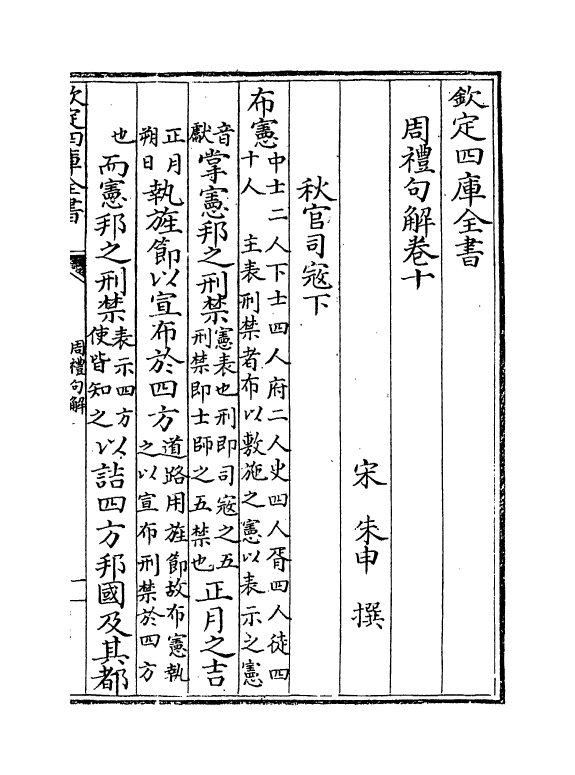 欽定四庫全書
周禮句解卷十
宋 朱申 撰
秋官司寇下
布憲中士二人下士四人府二人史四人胥四人徒四
十人 主表刑禁者布以敷施之憲以表示之憲
音獻掌憲邦之刑禁憲表也刑即司寇之五刑禁即士師之五禁也正月之吉
正月朔日執旌節以宣布於四方道路用旌節故布憲執之以宣布刑禁於四方
也而憲邦之刑禁表示四方使皆知之以詰四方邦國及其都
欽定四庫全書
周禮句解
一